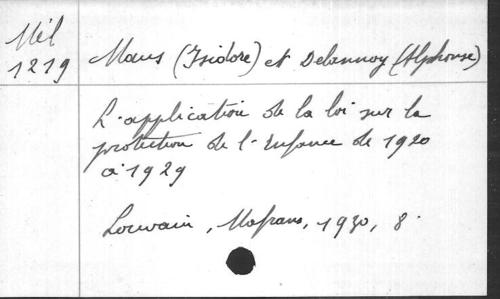 Mél
1219
Maus (Isidore) et Delannoy (Alphonse)
L'application de la loi sur la
protection de l'Enfance de 1920
à 1929
Louvain, 1930, 8°